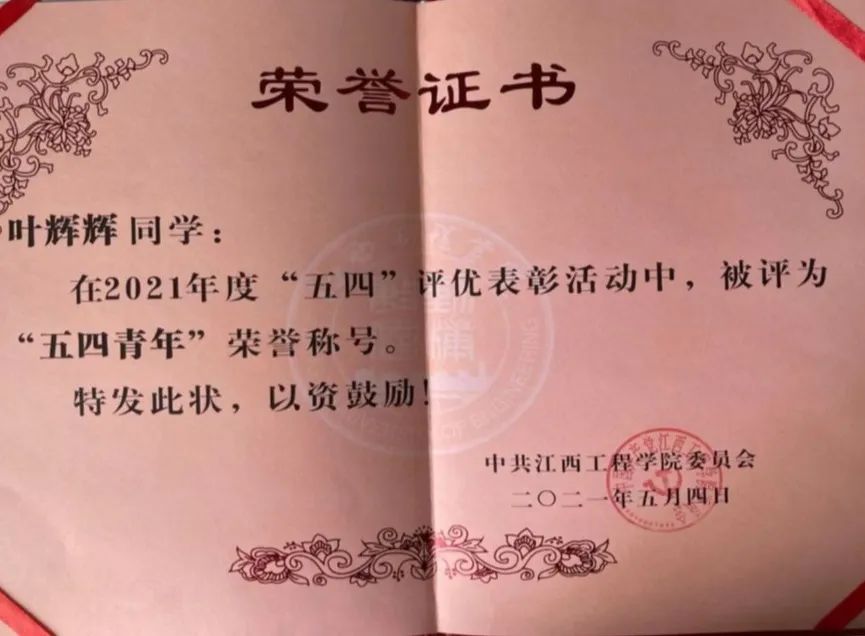 荣誉证书
叶辉辉 同学：
在2021年度“五四”评优表彰活动中，被评为
“五四青年”荣誉称号。
特发此状，以资鼓励！
中共江西工程学院委员会
二〇二一年五月四日